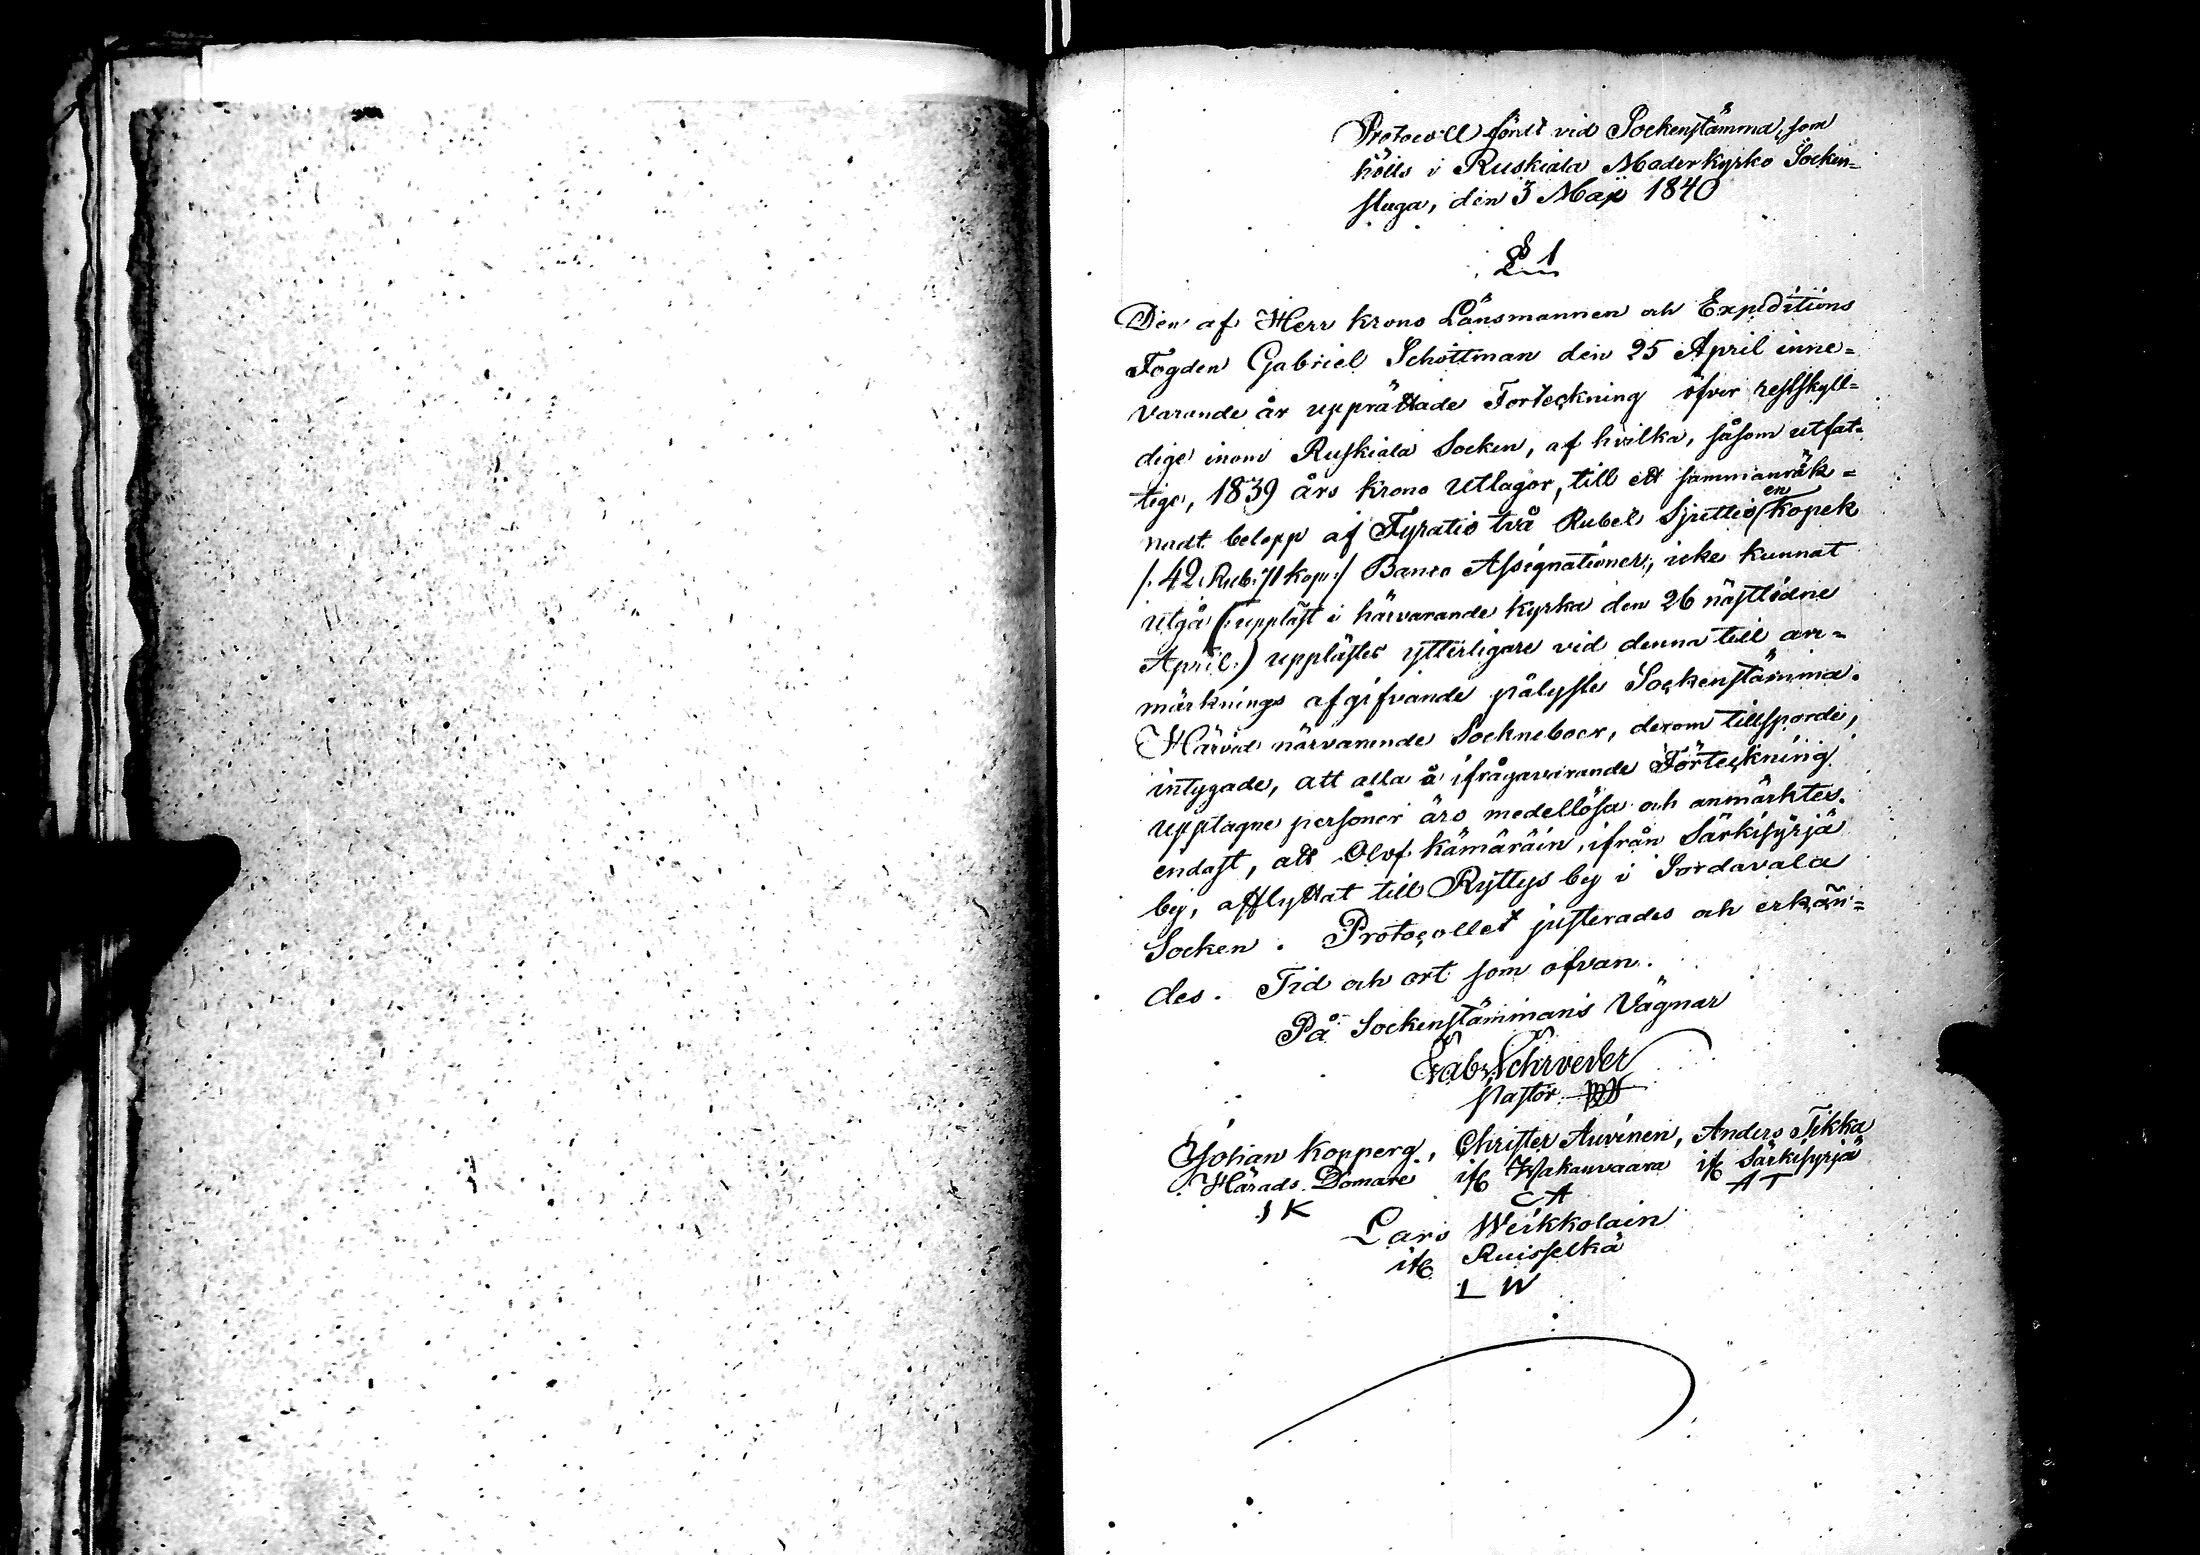 Protocoll fördt vid Sockenstämma, som
hölls i Ruskiala Moderkyrko Socken=
stuga, den 3 Maji 1840
§ 1
Den af Herr Krono Länsmannen och Expeditions
Fogden Gabriel Schottman den 25 April inne=
varande år upprättade Forteckning öfver restskyll=
dige inom Ruskiala Socken, af hvilka, såsom utfat=
tige, 1839 års Krono Utlagor, till ett sammanräk=
nadt belopp af Fyratio två Rubel Sjuttio en Kopek
/: 42 Rub: 71 kop: / Banco Assignationer, icke kunnat
utgå (: uppläst i härvarande kyrka den 26 nästledne
April:) upplästes ytterligare vid denna till an=
märknings afgifvande pålyste Sockenstämma.
Härvid närvarende Sockneboer, derom tillsporde,
intygade, att alla å ifrågavarande Förteckning
upptagne personer äro medellösa och anmärktes.
endast, att Olof Kämäräin, ifrån Särkisyrjä
by, afflyttat till Ryttys by i Sordavala
Socken. Protocollet justerades och erkän=
des. Tid och ort som ofvan.
På Sockenstämmans Vägnar
Gab: Schrveder
Pastor
Johan Kopperg, Christer Auvinen, Anders Tikka
Härads Domare ifr Wakanvaara ifr Särkisyrjä
J K C A A T
Lars Weikkolain
ifr Ruisselkä
L W